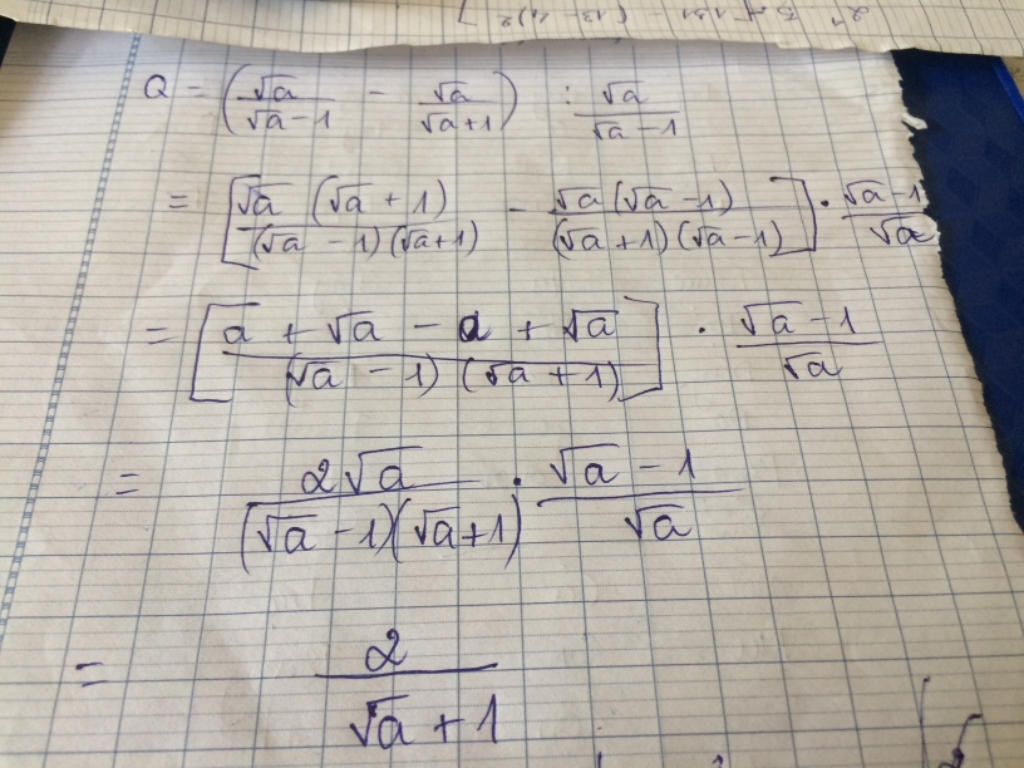 Q = (√a/(√a-1) - √a/(√a+1)) : √a/(√a-1)
= [√a(√a+1)/(√a-1)(√a+1) - √a(√a-1)/(√a+1)(√a-1)] · (√a-1)/√a
= [(a+√a-a+√a)/(√a-1)(√a+1)] · (√a-1)/√a
= 2√a/(√a-1)(√a+1) · (√a-1)/√a
= 2/(√a+1)